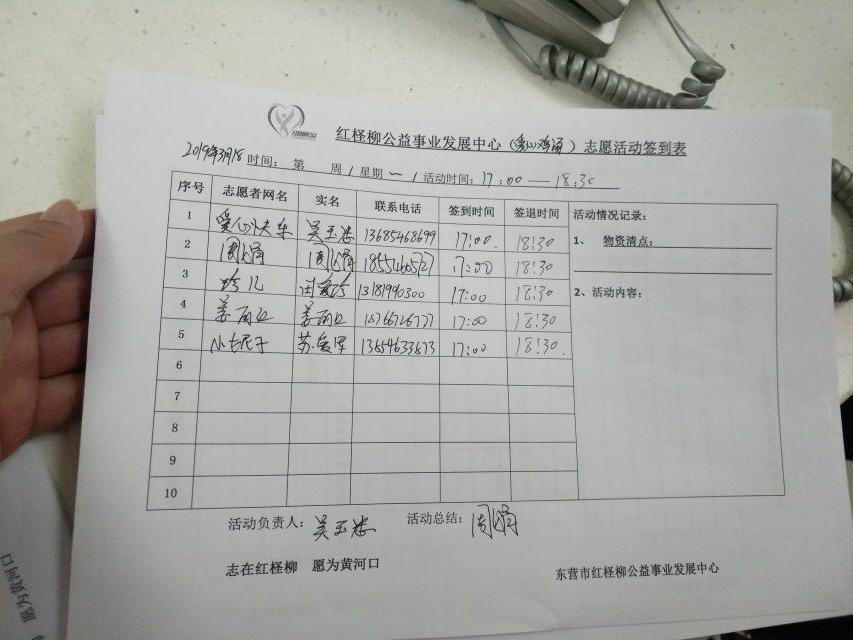 红柽柳公益事业发展中心（爱心鸡汤）志愿活动签到表
2019年3月18 时间：第 周/星期一/活动时间：17:00—18:30
序号 志愿者网名 实名 联系电话 签到时间 签退时间 活动情况记录：
1 爱心快车 吴玉 13685468699 17:00 18:30
1、 物资清点：
2 周娟 周娟 17:00 18:30
3 玲儿 13181990300 17:00 18:30
2、活动内容：
4 姜丽 姜丽 18766726777 17:00 18:30
5 小七尼子 苏爱军 13654633673 17:00 18:30
6
7
8
9
10
活动负责人：吴玉 活动总结：周娟
志在红柽柳 愿为黄河口 东营市红柽柳公益事业发展中心
愿为黄河口